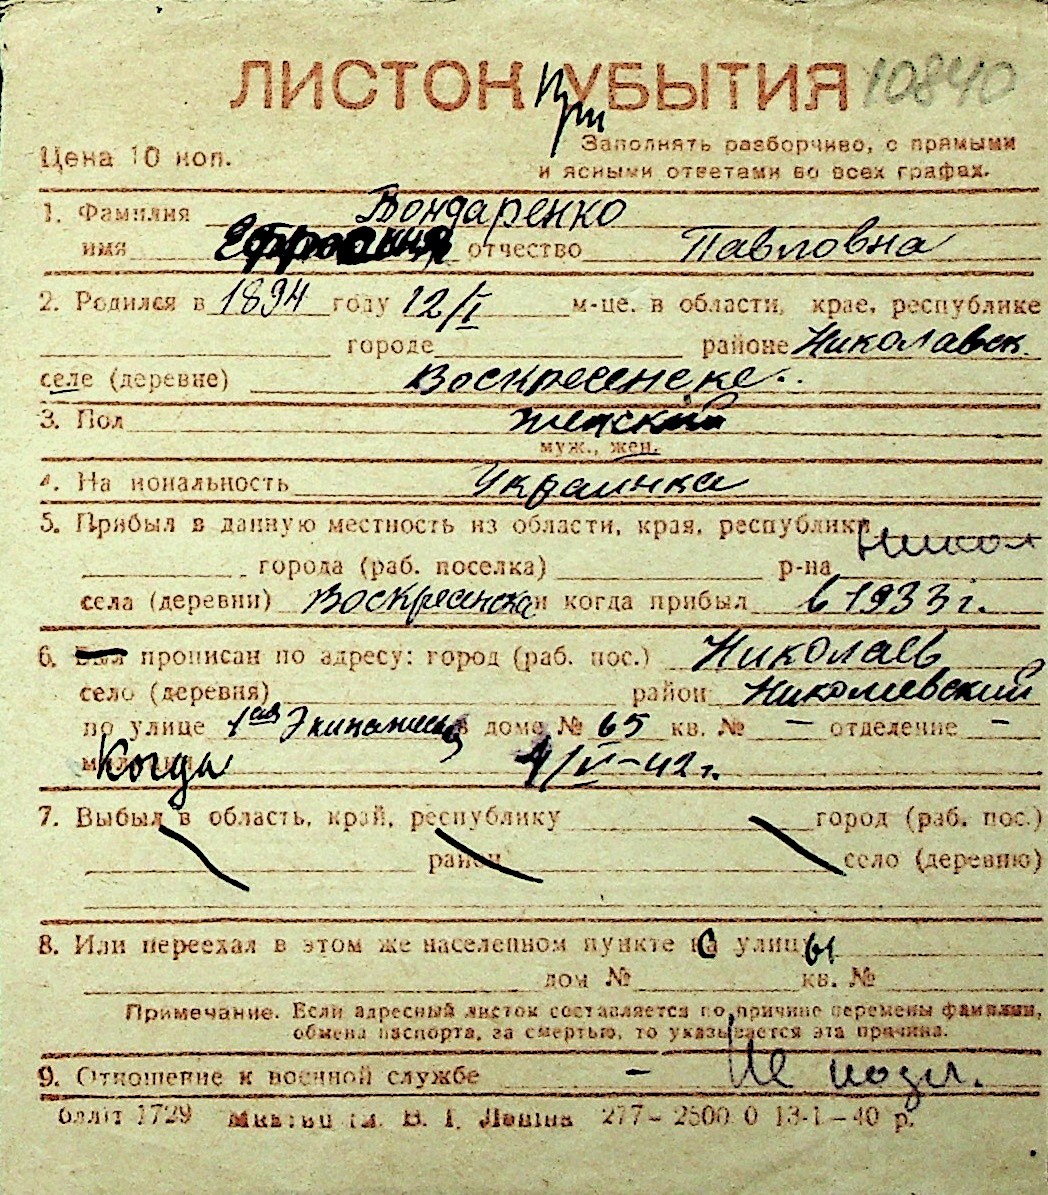 ЛИСТОК При УБЫТИЯ 10840
Цена 10 коп. Заполнять разборчиво, с прямыми
и ясными ответами во всех графах.
1. Фамилия Бондаренко
имя отчество Павловна
2. Родился в 1894 году 12/I м-це. в области, крае, республике
городе районе Николаевск.
селе (деревне) Воскресенске.
3. Пол женский
муж., жен.
4. На иональность Украинка
5. Прибыл в данную местность из области, края, республики
города (раб. поселка) р-на Никол
села (деревни) Воскресенска и когда прибыл в 1933 г.
6. Был прописан по адресу: город (раб. пос.) Николаев
село (деревня) район Николаевский
по улице 1ая Экипажная в доме № 65 кв. № – отделение –
Когда 4/V-42 г.
7. Выбыл в область, край, республику город (раб. пос.)
район село (деревню)
8. Или переехал в этом же населенном пункте с улицы
дом № кв. №
Примечание. Если адресный листок составляется по причине перемены фамилии,
обмена паспорта, за смертью, то указывается эта причина.
9. Отношение к военной службе – Не подл.
1729 ім. В. І. Леніна 277–2500 0 13-1–40 р.